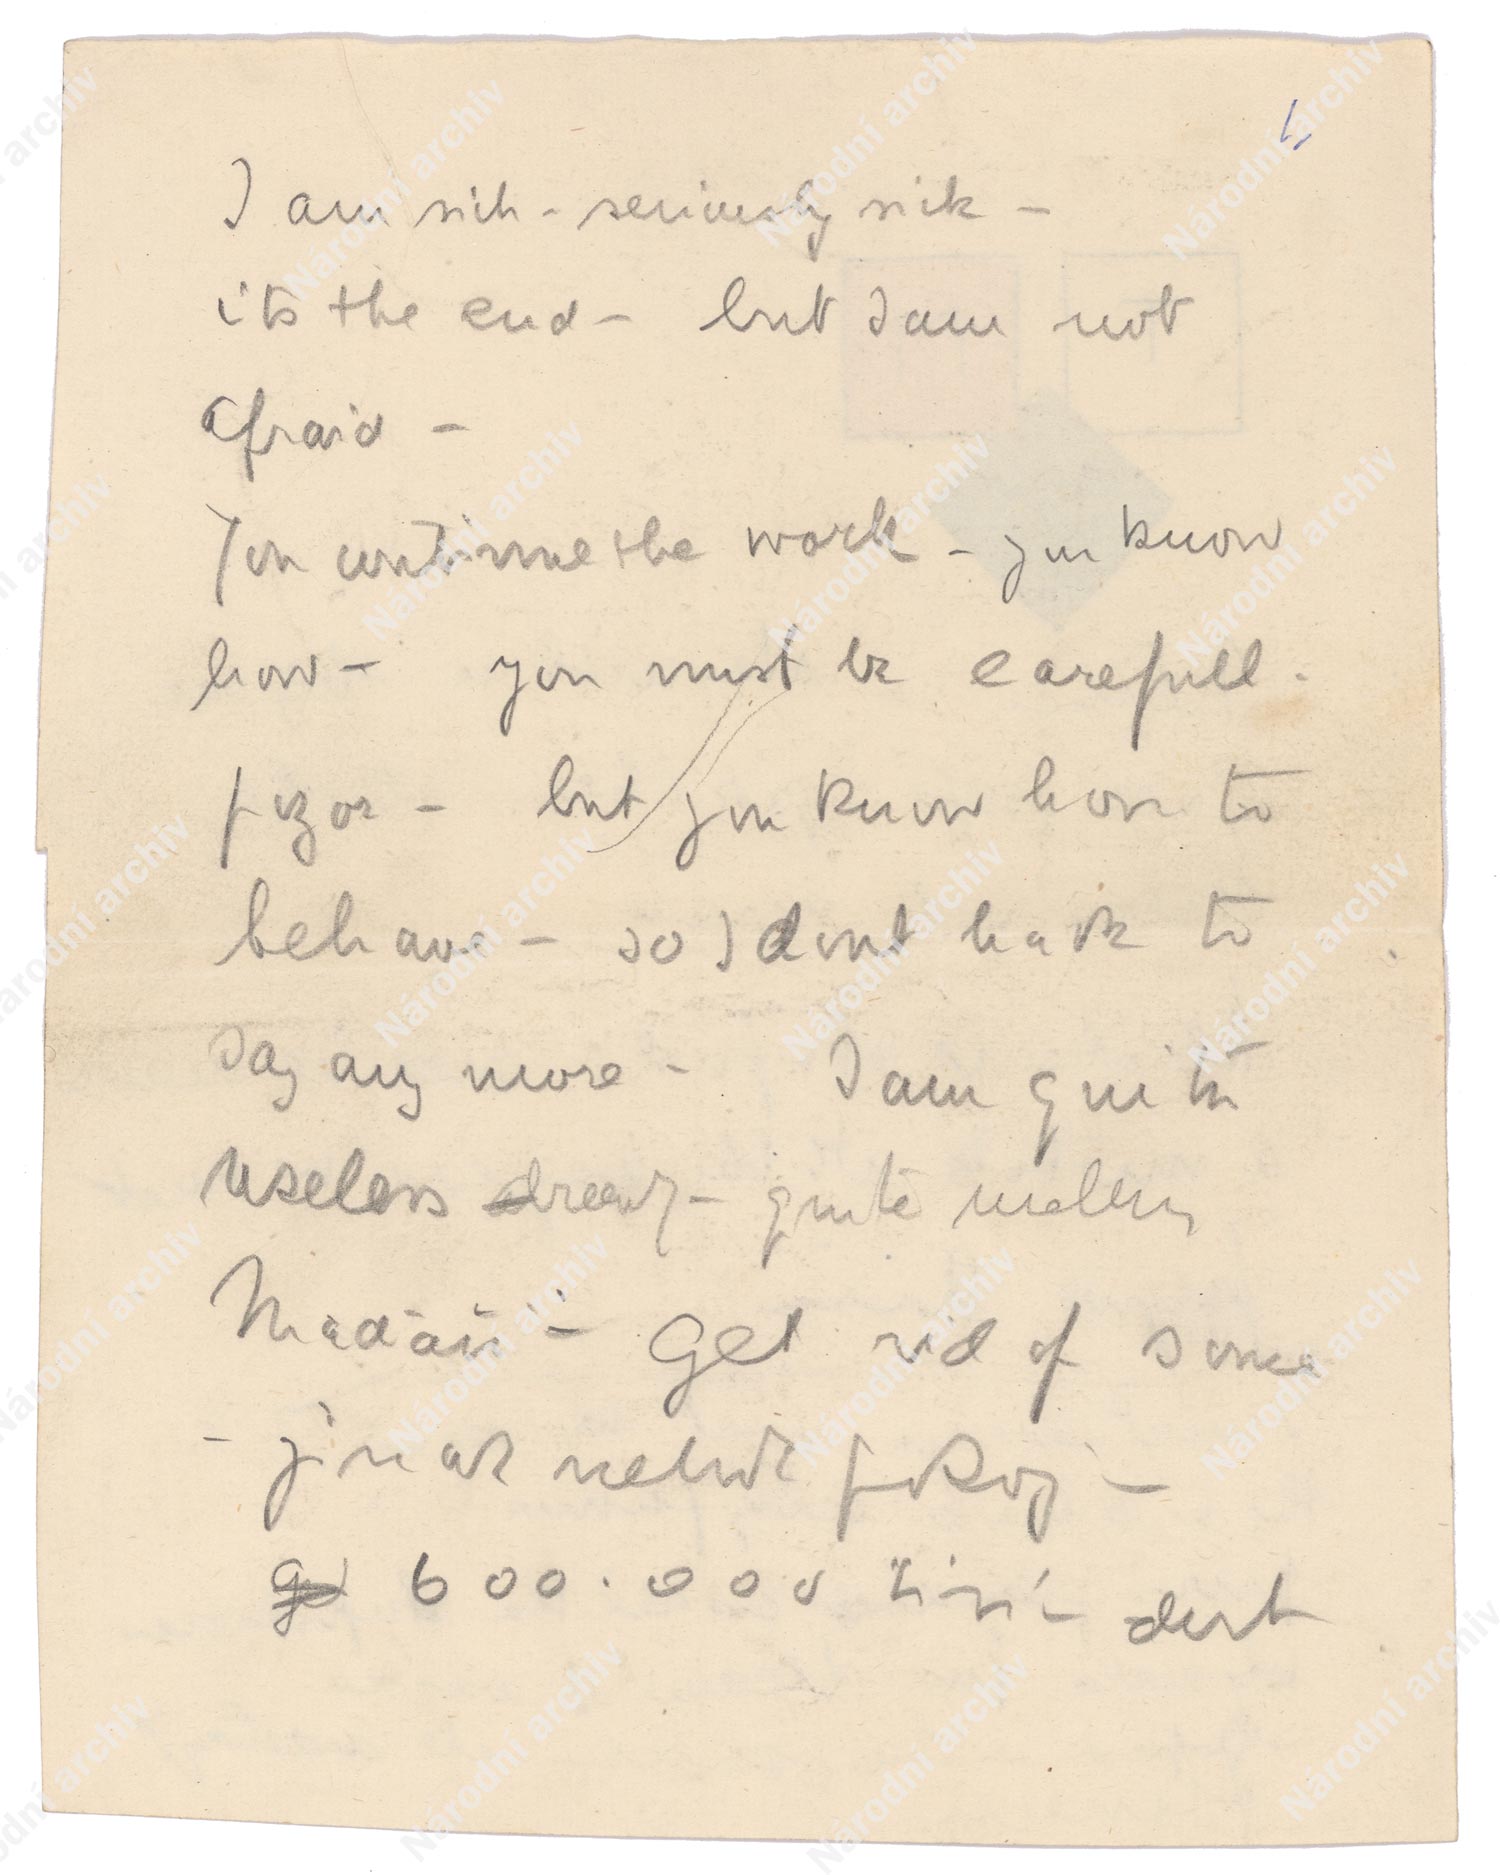 1,
I am sick - seriously sick -
its the end - but I am not
afraid -
You continue the work - you know
how - you must be carefull -
pozor - but you know how to
behave - so I dont have to
say any more - I am quite
useless - quite useless
Maďaři - Get rid of some
- jinak nebude pokoj -
600.000 žijí -
Národní archiv